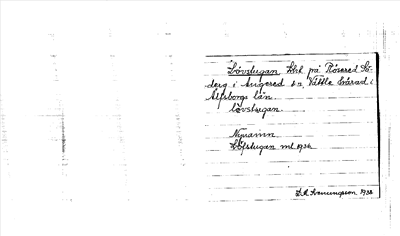 Lövstugan, lht på Rösered Sö-
derg i Angered sn, Vättle härad i
Älfsborgs län
lövstugan.
Nynamn.
Löfstugan mt 1934
1938